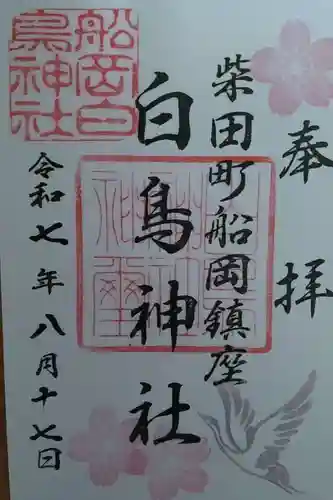 奉拝
柴田町船岡鎮座
白鳥神社
令和七年八月十七日
船岡白
鳥神社